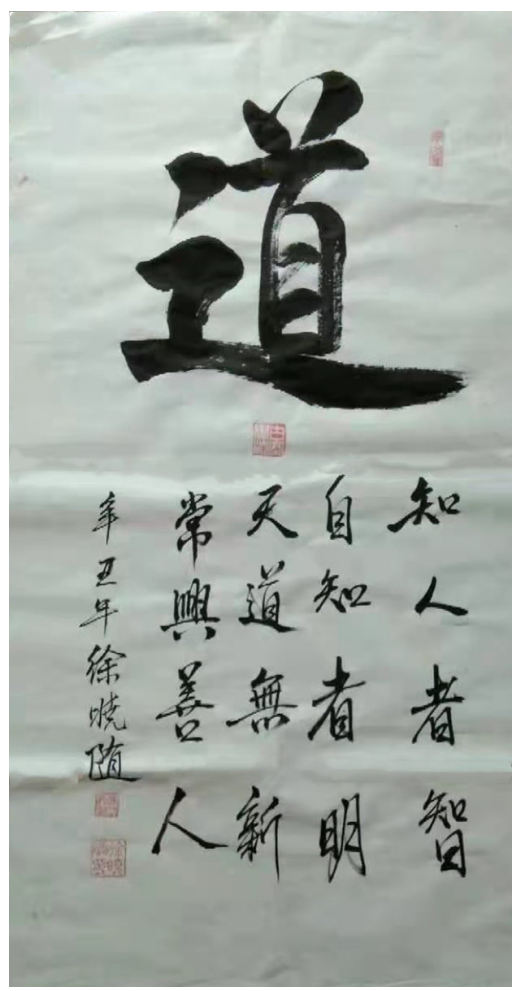 道
知人者智
自知者明
天道無新
常興善人
辛丑年徐晓随